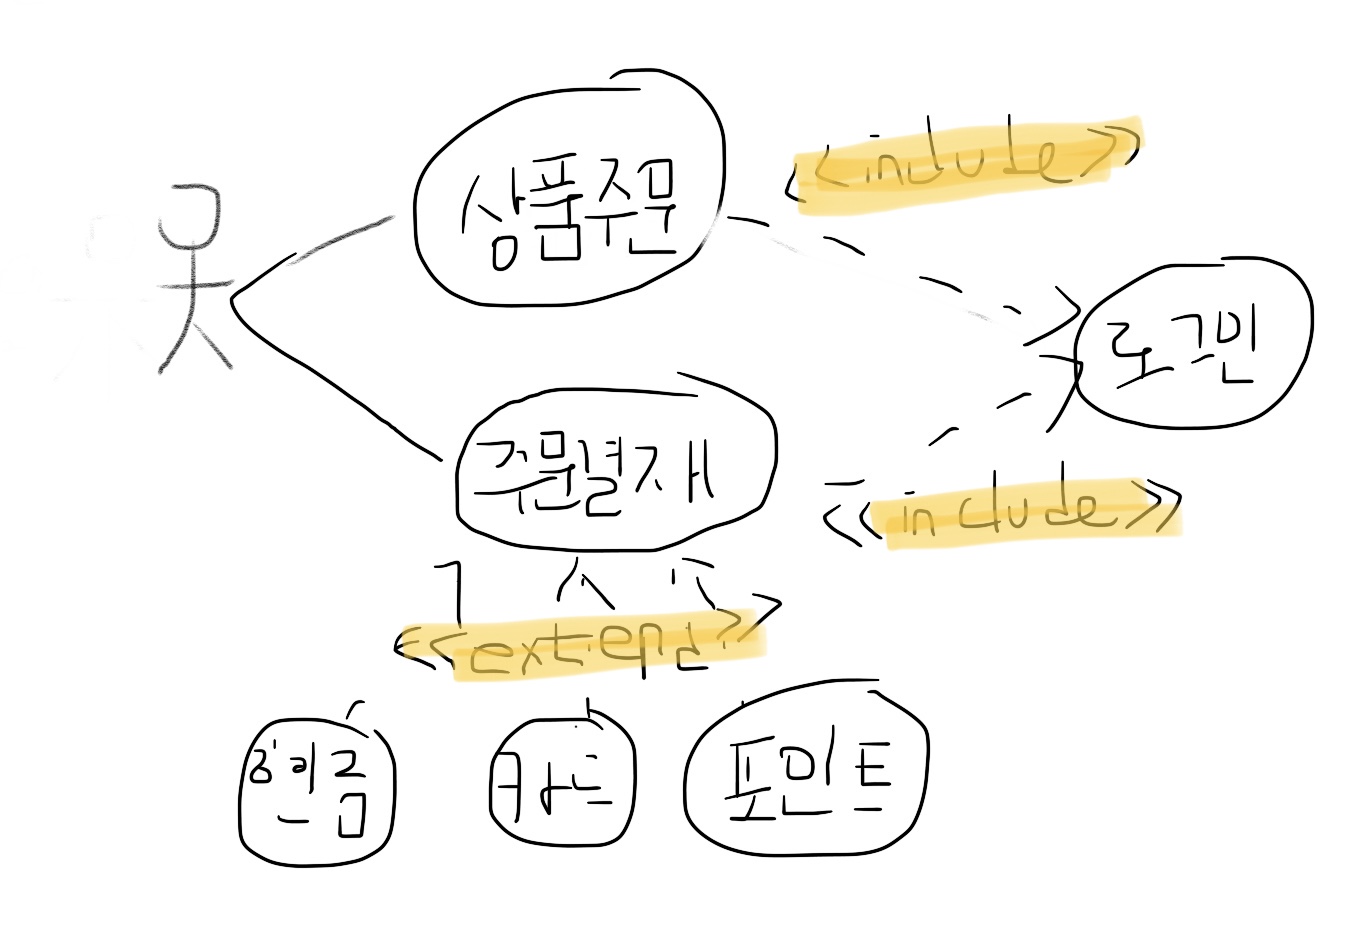 상품주문
<<include>>
로그인
주문결재
<<include>>
<<extend>>
현금
카드
포인트